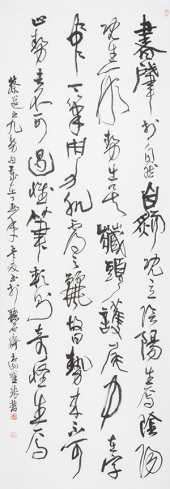 書肇於自然自然既立陰陽生焉陰陽
既生形勢出矣藏頭護尾力在字
中下筆用力肌膚之麗故曰勢來不可
止勢去不可遏惟筆軟則奇怪生焉
蔡邕之九勢句